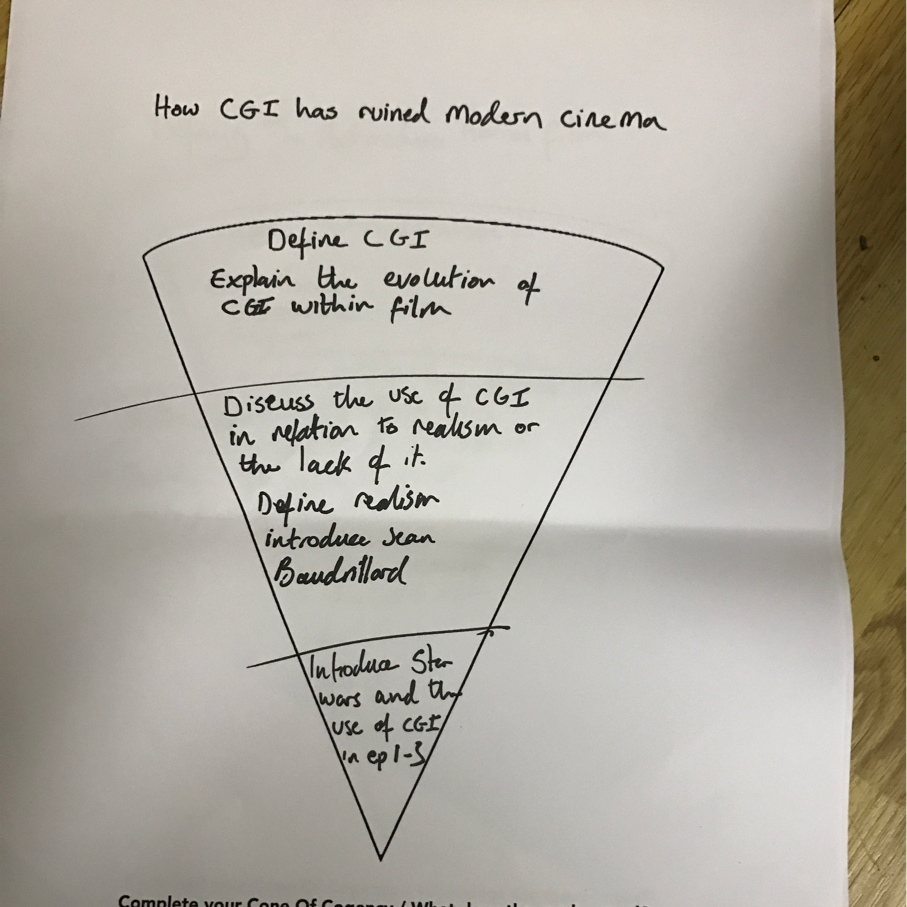 How CGI has ruined modern cinema
Define CGI
Explain the evolution of
CGI within film
Discuss the use of CGI
in relation to realism or
the lack of it.
Define realism
introduce Jean
Baudrillard
Introduce Star
wars and the
use of CGI
in ep 1-3
Complete your Cone Of Cogency / What